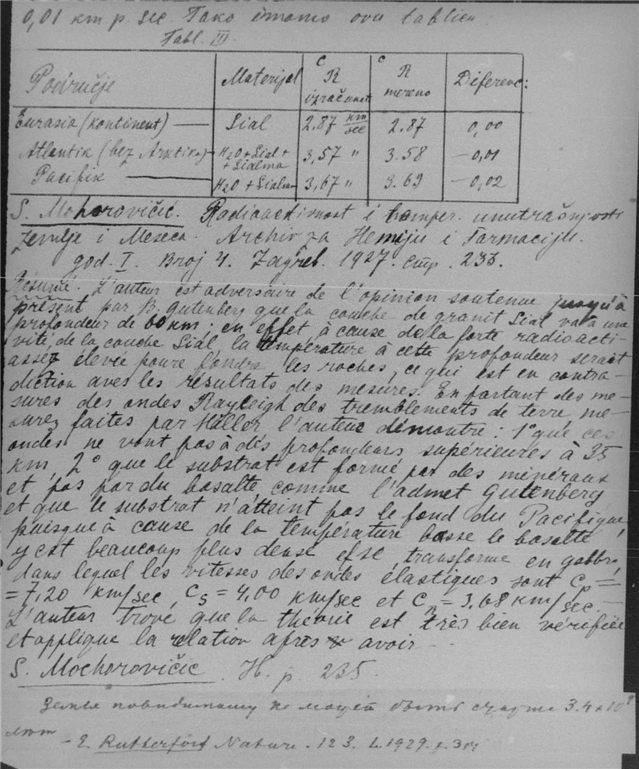 0,01 km p. sec. Tako imamo ovu tablicu
Tabl. III.
Područje Materijal C R izračunato C R mereno Diferenc:
Eurasia (kontinent) — Sial 2.87 km/sec 2.87 0,00
Atlantik (bez Arktika) H₂O + Sial + + Sialma 3,57 " 3.58 — 0,01
Pacifik — H₂O + Sialma 3,67 " 3.69 — 0,02
S. Mohorovičić. Radioaktivnost i temper. unutrašnjosti
Zemlje i Meseca. Archiv za Hemiju i Farmaciju.
god. I. Broj 4. Zagreb. 1927. стр. 233.
Résumé. L'auteur est adversaire de l'opinion soutenue jusqu'à
présent par B. Gutenberg que la couche de granit Sial va à une
profondeur de 60 km; en effet à cause de la forte radioacti
vité de la couche Sial la température à cette profondeur serait
assez élevée poure fondre les roches, ce qui est en contra-
diction aves les résultats des mesures. En partant des me-
sures des ondes Rayleigh des tremblements de terre me-
surez faites par Hiller l'auteur démontre: 1° que ces
ondes ne vont pas à des profondeurs supérieures à 35
km, 2° que le substrat est formé par des minéraux
et pas par du basalte comme l'admet Gutenberg
et que le substrat n'atteint pas le fond du Pacifique,
puisque à cause de la température basse le basalte
y est beaucoup plus dense et se transforme en gabbro,
dans lequel les vitesses des ondes élastiques sont Cp =
= 7,20 km/sec, Cs = 4,00 km/sec et CR = 3,68 km/sec.
L'auteur trove que la théorie est très bien vérifiée
et applique la relation après avoir —
S. Mochorovičic. H. p. 235.
Земля повидимому не может быть старше 3.4 × 10⁹
лет
— E. Rutterforf Nature. 123. L. 1929. p. 314